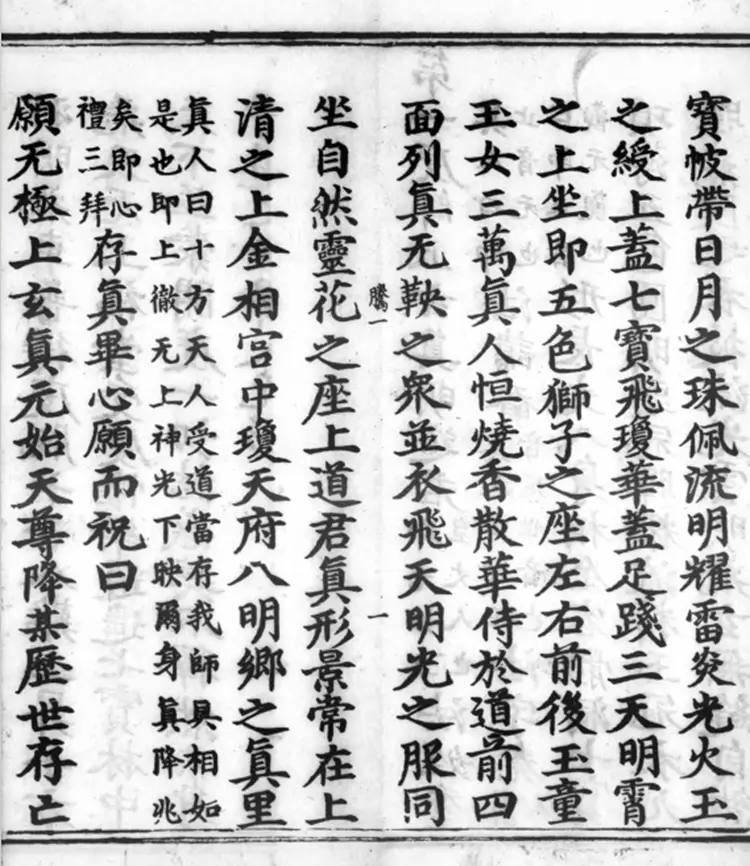 寶帔帶日月之珠佩流明耀雷炎光火玉
之綬上蓋七寶飛瓊華蓋足踐三天明霄
之上坐即五色獅子之座左右前後玉童
玉女三萬真人恒燒香散華侍於道前四
面列真无鞅之衆並衣飛天明光之服同
騰一
一
坐自然靈花之座上道君真形景常在上
清之上金相宫中瓊天府八明鄉之真里
真人曰十方天人受道當存我師具相如
是也即上徹无上神光下映爾身真降兆
矣即心
禮三拜
存真畢心願而祝曰
願无極上玄真元始天尊降某歷世存亡